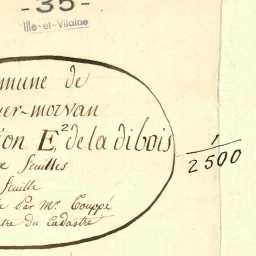 - 35 -
Ille-et-Vilaine
mmune de
er-morvan
ion E² de la dibois
1
2500
feuilles
feuille
Par Mr. Couppé
tre du Cadastre